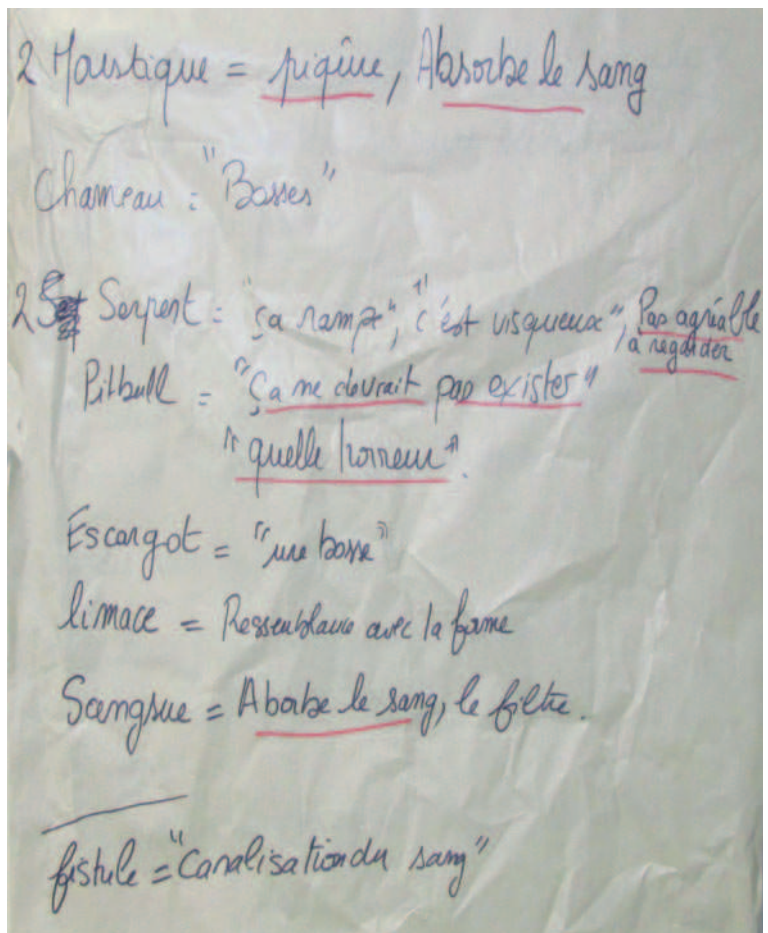 2 Moustique = piqûre, Absorbe le sang
Chameau : "Bosses"
2 Serpent = "ça rampe", "c'est visqueux", Pas agréable
à regarder
Pitbull = "Ça ne devrait pas exister"
"quelle horreur".
Escargot = "une bosse"
limace = Ressemblance avec la forme
Sangsue = Absorbe le sang, le filtre.
fistule = "Canalisation du sang"